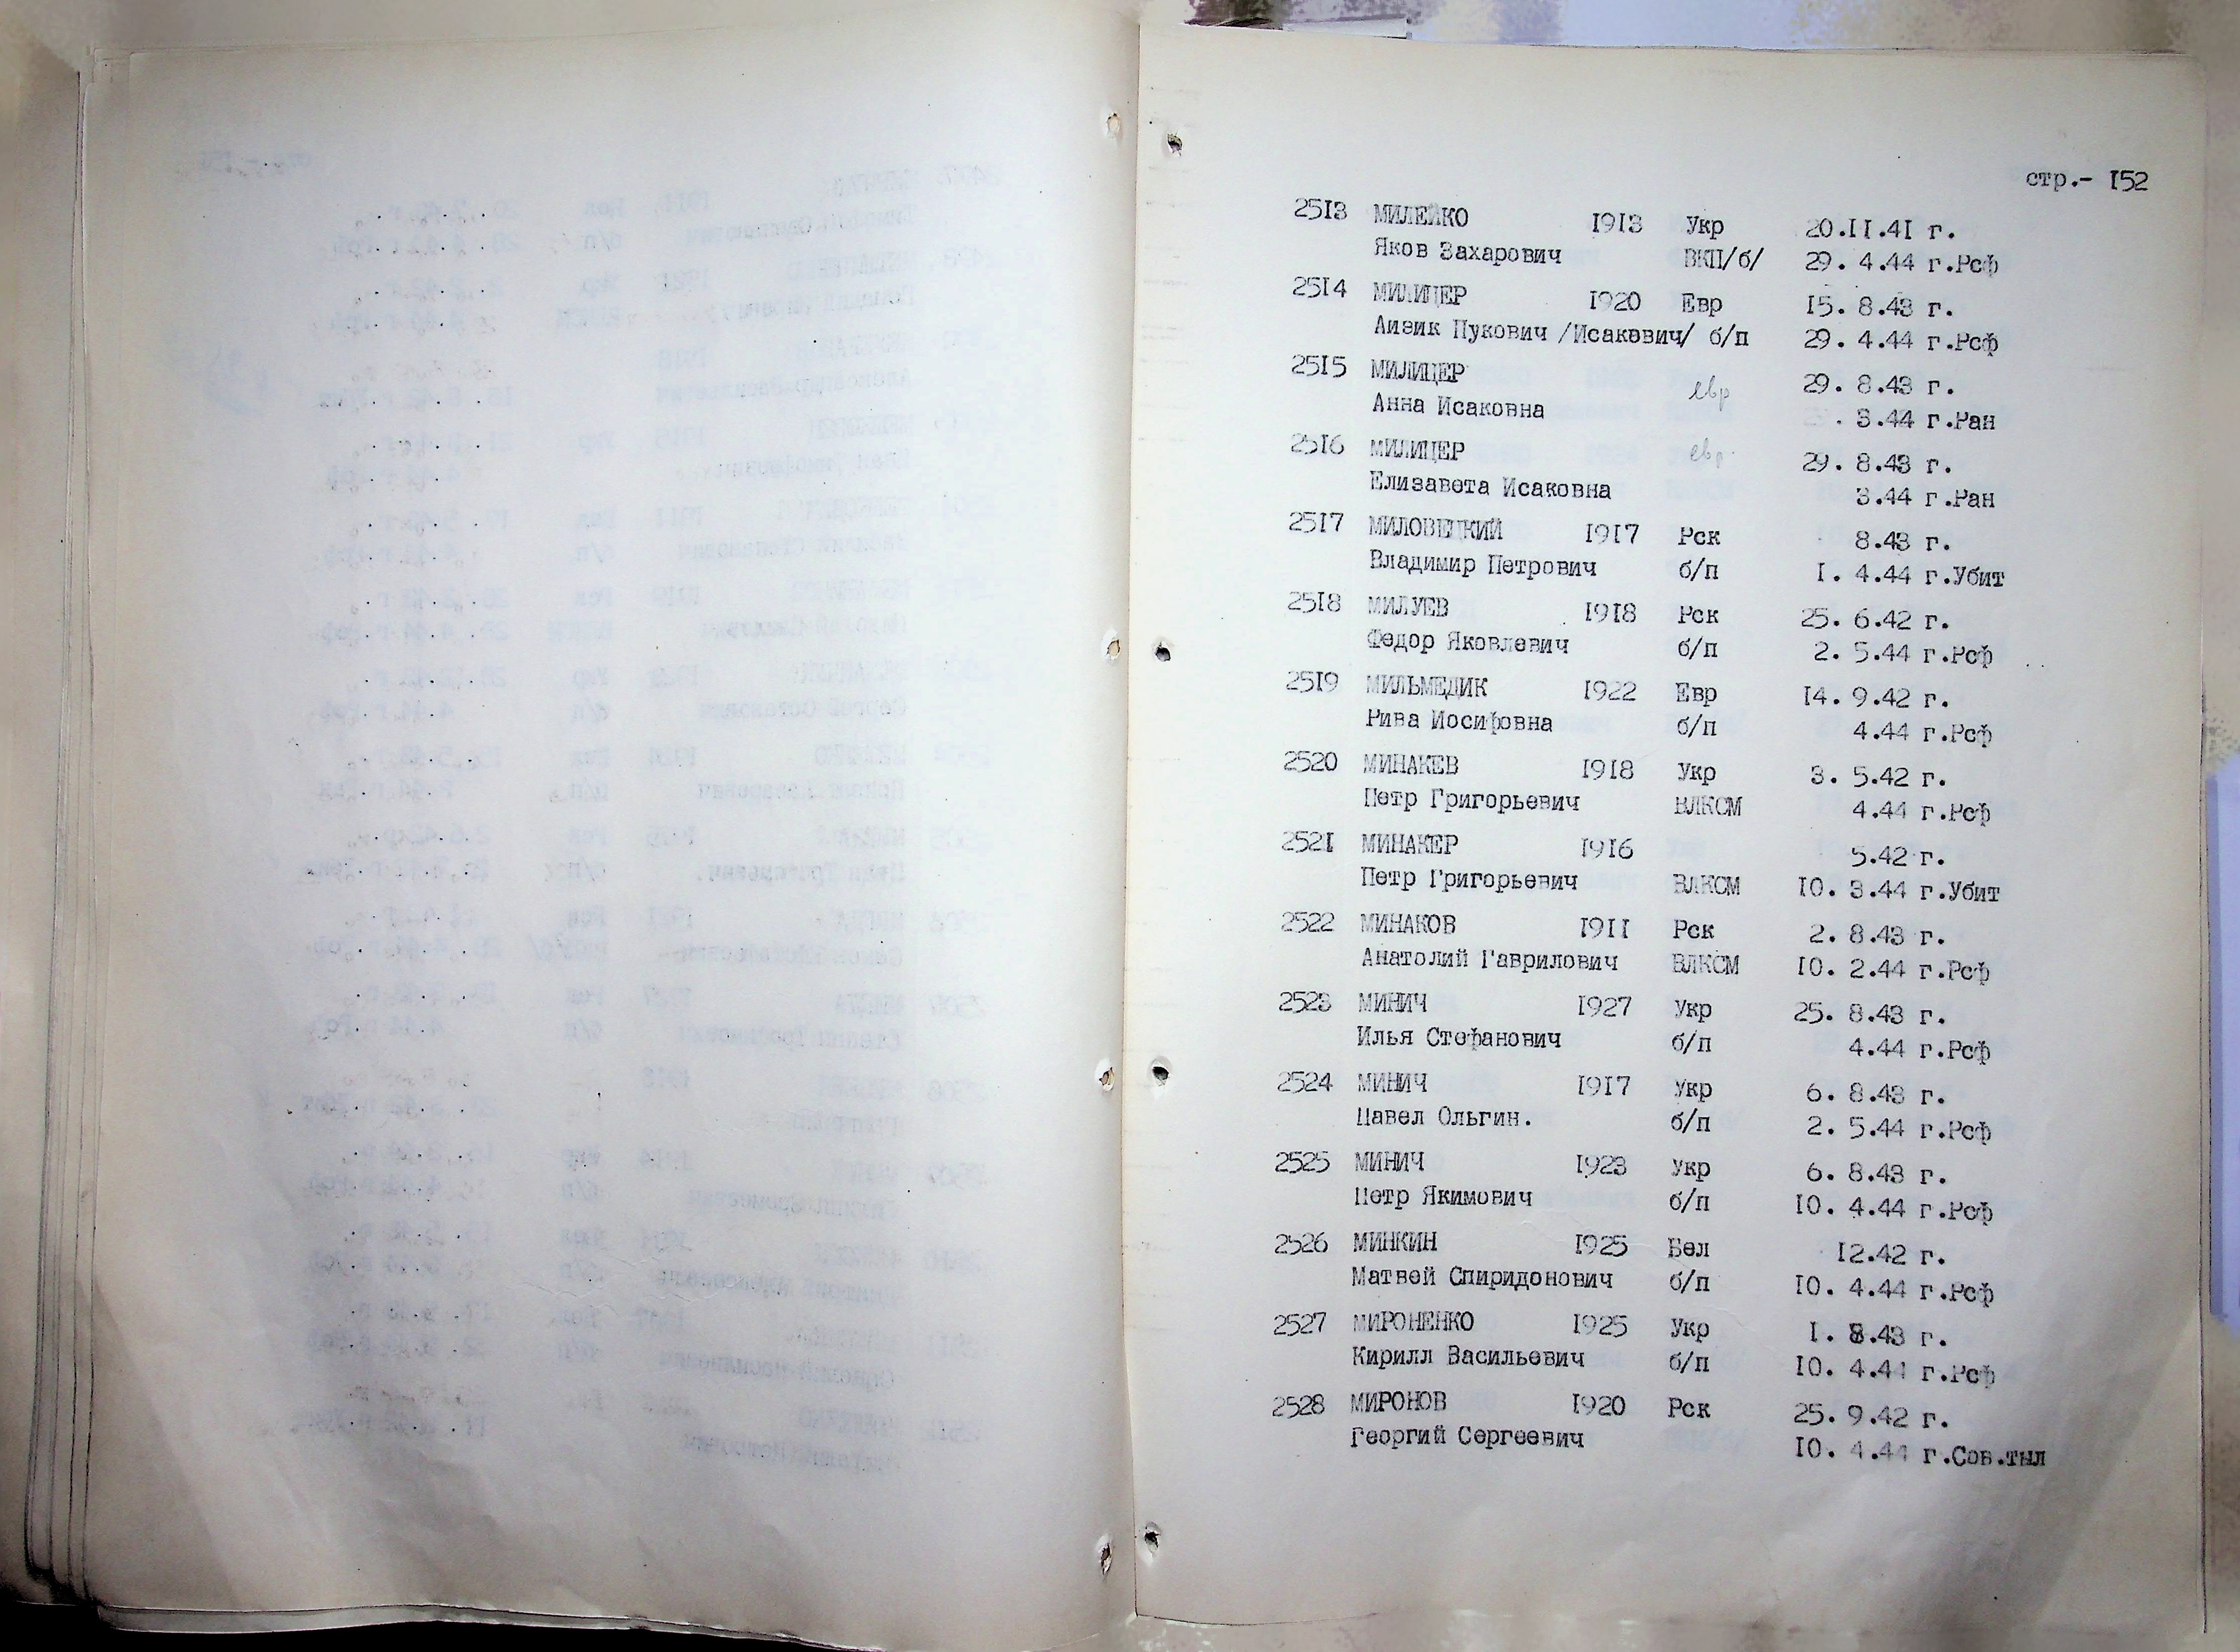 стр.- 152
2513 МИЛЕЙКО 1913 Укр 20.11.41 г.
Яков Захарович ВКП/б/ 29. 4.44 г.Рсф
2514 МИЛИЦЕР 1920 Евр 15. 8.43 г.
Аизик Пукович /Исакович/ б/п 29. 4.44 г.Рсф
2515 МИЛИЦЕР евр 29. 8.43 г.
Анна Исаковна . 3.44 г.Ран
2516 МИЛИЦЕР евр 29. 8.43 г.
Елизавета Исаковна 3.44 г.Ран
2517 МИЛОВЕЦКИЙ 1917 Рск 8.43 г.
Владимир Петрович б/п 1. 4.44 г.Убит
2518 МИЛУЕВ 1918 Рск 25. 6.42 г.
Федор Яковлевич б/п 2. 5.44 г.Рсф
2519 МИЛЬМЕДИК 1922 Евр 14. 9.42 г.
Рива Иосифовна б/п 4.44 г.Рсф
2520 МИНАКЕВ 1918 Укр 3. 5.42 г.
Петр Григорьевич ВЛКСМ 4.44 г.Рсф
2521 МИНАКЕР 1916 5.42 г.
Петр Григорьевич ВЛКСМ 10. 3.44 г.Убит
2522 МИНАКОВ 1911 Рск 2. 8.43 г.
Анатолий Гаврилович ВЛКСМ 10. 2.44 г.Рсф
2523 МИНИЧ 1927 Укр 25. 8.43 г.
Илья Стефанович б/п 4.44 г.Рсф
2524 МИНИЧ 1917 Укр 6. 8.43 г.
Павел Ольгин. б/п 2. 5.44 г.Рсф
2525 МИНИЧ 1923 Укр 6. 8.43 г.
Петр Якимович б/п 10. 4.44 г.Рсф
2526 МИНКИН 1925 Бел 12.42 г.
Матвей Спиридонович б/п 10. 4.44 г.Рсф
2527 МИРОНЕНКО 1925 Укр 1. 8.43 г.
Кирилл Васильевич б/п 10. 4.44 г.Рсф
2528 МИРОНОВ 1920 Рск 25. 9.42 г.
Георгий Сергеевич 10. 4.44 г.Сов.тыл